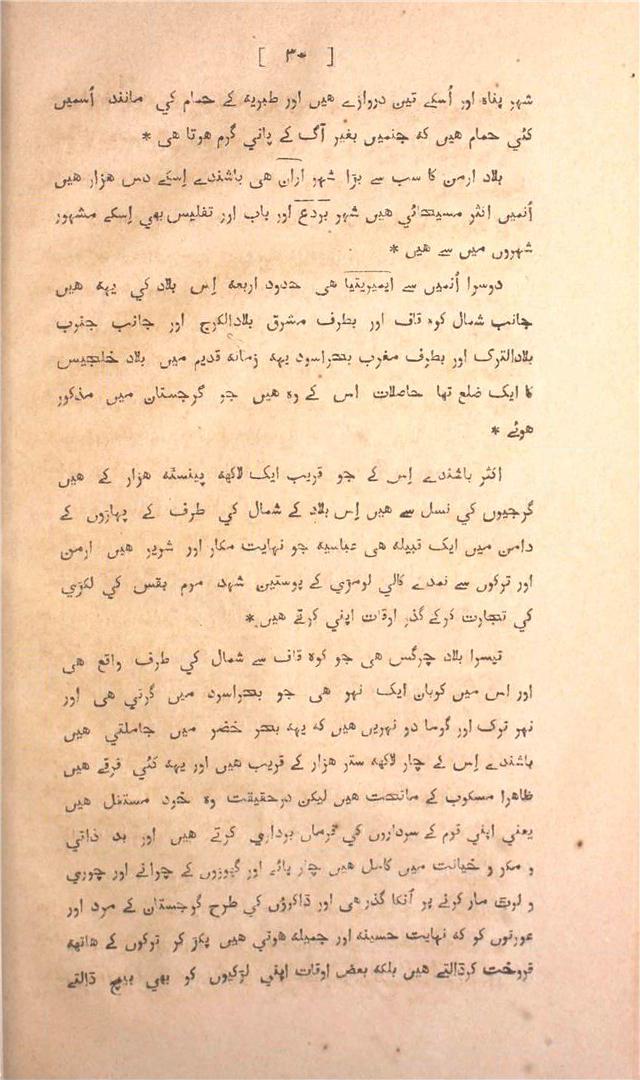 [ ۳۰ ]
شہر پناہ اور اُسکے تین دروازے هیں اور طبریہ کے حمام کي مانند اُسمیں
کئي حمام هیں کہ جنمیں بغیر آگ کے پاني گرم هوتا هی *
بلاد ارمن کا سب سے بڑا شہر اران هی باشندے اِسکے دس هزار هیں
اُنمیں اکثر مسیحائي هیں شہر بردع اور باب اور تفلیس بھی اِسکے مشہور
شہروں میں سے هیں *
دوسرا اُنمیں سے ایمیریتیا هی حدود اربعہ اِس بلاد کي یہہ هیں
جانب شمال کوہ قاف اور بطرف مشرق بلادالکرج اور جانب جنوب
بلادالترک اور بطرف مغرب بحراسود یہہ زمانہ قدیم میں بلاد خلجیس
کا ایک ضلع تھا حاصلات اس کے وہ هیں جو گرجستان میں مذکور
هوئے *
اکثر باشندے اِس کے جو قریب ایک لاکھہ پینسٹہ هزار کے هیں
گرجیوں کي نسل سے هیں اِس بلاد کے شمال کي طرف کے پہاڑوں کے
دامن میں ایک قبیلہ هی عباسیہ جو نہایت مکار اور شریر هیں ارمن
اور ترکوں سے نمدے کالي لومڑي کے پوستین شہد موم بقس کي لکڑي
کي تجارت کرکے گذر اوقات اپني کرتے هیں *
تیسرا بلاد چرگس هی جو کوہ قاف سے شمال کي طرف واقع هی
اور اس میں کوبان ایک نہر هی جو بحراسود میں گرتي هی اور
نہر ترک اور گوما دو نہریں هیں کہ یہہ بحر خضر میں جاملتي هیں
باشندے اِس کے چار لاکھہ ستر هزار کے قریب هیں اور یہہ کئي فرقے هیں
ظاهرا مسکوب کے ماتحت هیں لیکن درحقیقت وہ خود مستقل هیں
یعني اپني قوم کے سرداروں کي فرماں برداري کرتے هیں اور بد ذاتي
و مکر و خیانت میں کامل هیں چار پائے اور گھوڑوں کے چرانے اور چوري
و لوٹ مار کرنے پر اُنکا گذر هی اور ڈاکوؤں کي طرح گرجستان کے مرد اور
عورتوں کو کہ نہایت حسینہ اور جمیلہ هوتي هیں پکڑ کر ترکوں کے هاتھہ
فروخت کرڈالتے هیں بلکہ بعض اوقات اپني لڑکیوں کو بھي بیچ ڈالتے